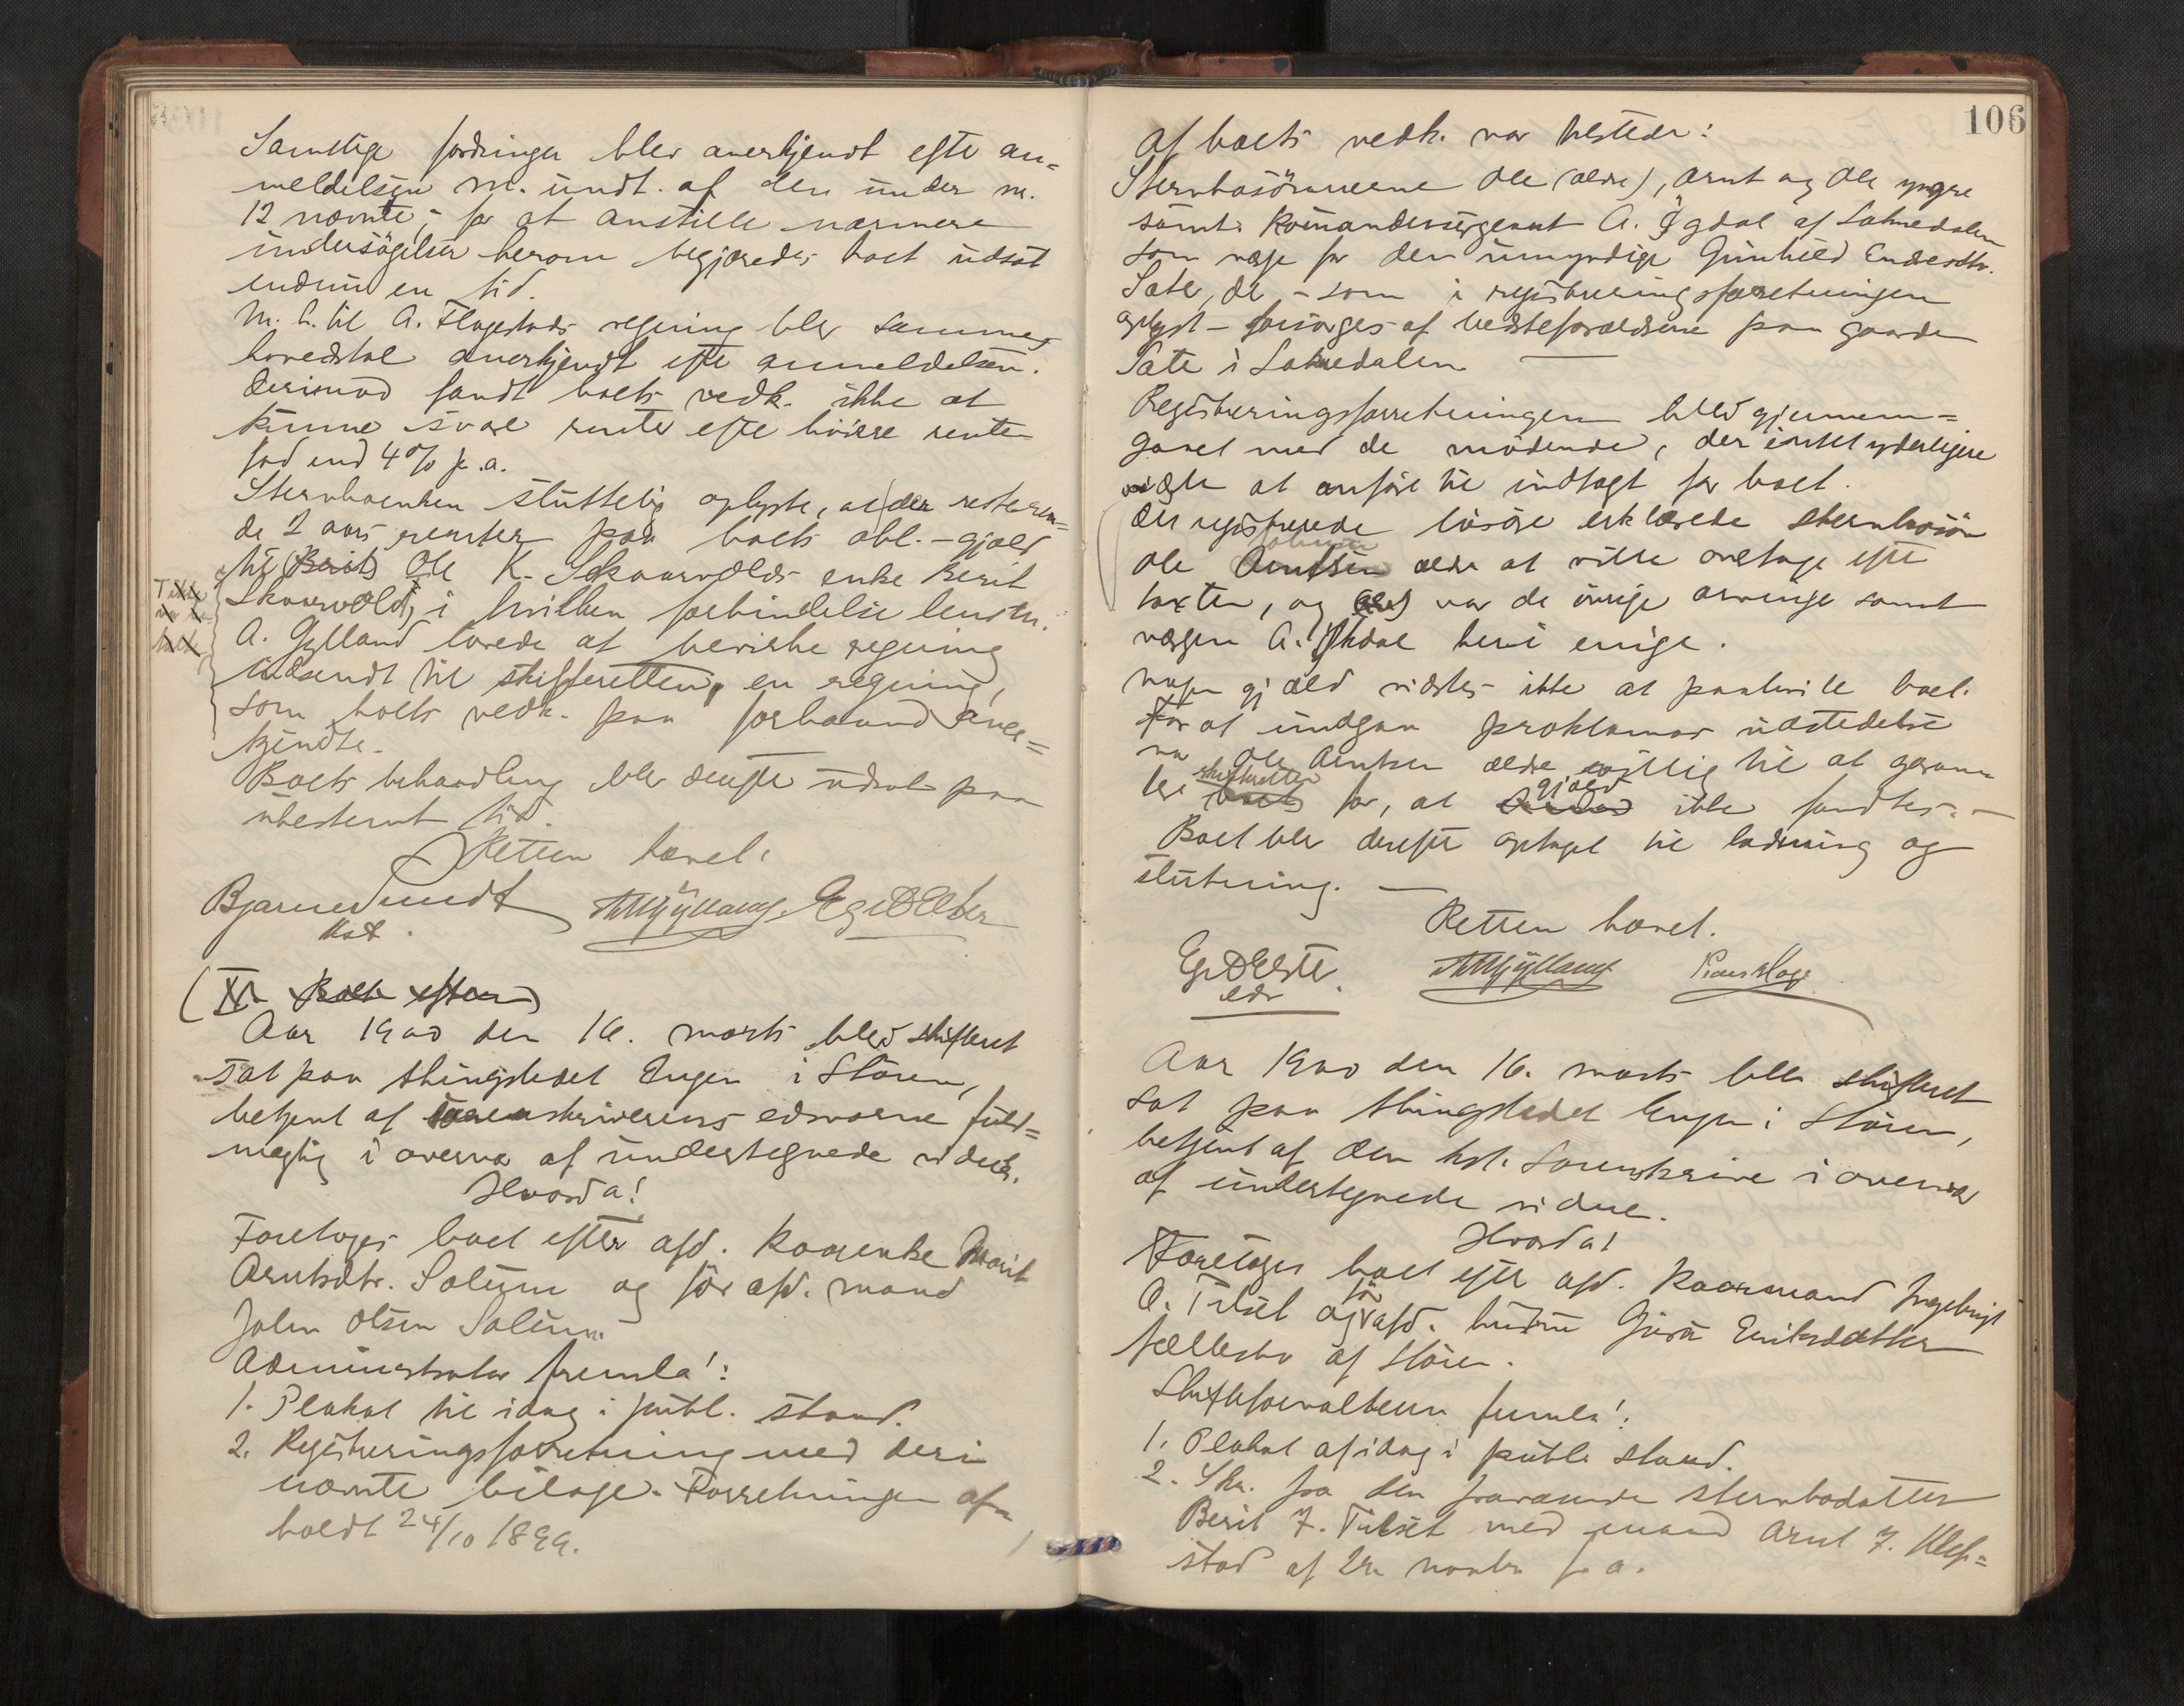 Samtlige fordringer blev anerkjendt efter an=
meldelsen m. undt. af den under nr.
12 nævnte; for at anstille nærmere
undersøgelser herom begjæredes boet udsat
endnu en tid.
M. h. til A. Flagestads regning blev sammes
hovedstol anerkjendt efter anmeldelsen.
Derimod fandt boets vedk. ikke at
kunne svare renter efter høiere rente
fod end 4% p. a.
Sterboenken sluttelig oplyste, at der resteren=
de 2 aars renter paa boets obl.-gjæld
til (Berit) Ole K. Skaarvolds enke Berit
Skaarvold, i hvilken forbindelse lensm.
A. Gylland lovede at bevirke regning
indsendt til skifteretten, en regning,
som boets vedk. paa forhaand aner=
kjendte.
Boets behandling blev derefter udsat paa
ubestemt tid.
Retten hævet.
Bjarne Sundt AMGylland. Eg. DElster
kst.
(II. Boet efter)
Aar 1900 den 16. marts blev skifteret
sat paa thingstedet Engen i Støren,
betjent af sorenskriverens edsvorne fuld=
mægtig i overvær af undertegnede vidner.
Hvorda!
Foretoges boet efter afd. kaarenke Marit
Arntsdtr. Solem og før afd. mand
John Olsen Solem.
Administrator fremla':
1. Plakat til idag i publ. stand.
2. Registreringsforretning med deri
nævnte bilage. Forretningen af=
holdt 24/10 1899.
106
af boets vedk. var tilstede:
Sterbosønnerne Ole (ældre), Arnt og Ole yngre
samt komandersergeant A. Ygdal af Soknedalen
som værge for den umyndige Gunhild Endresdtr.
Sate, der - som i registreringsforretningen
oplyst - forsørges af bedsteforældrene paa gaarden
Sate i Soknedalen. —
Registreringsforretningen blev gjennem=
gaaet med de mødende, der intet yderligere
vidste at anføre til indtægt for boet.
Det registrerede løsøre erklærede sterbosøn
Ole Arntsen Johnsen ældre at ville overtage efter
taxten, og var de øvrige arvinge samt
værgen A. Ygdal heri enige.
Nogen gjæld vidstes ikke at paahvile boet.
For at undgaa proklamas udstedelse
var Ole Arntsen ældre villig til at garan
tere boet skifteretten for, at gjæld ikke fandtes. —
Boet blev derefter optaget til lodning og
slutning. —
Retten hævet.
Eg. DElster. AMGylland
edsv.
Aar 1900 den 16. marts blev skifteret
sat paa thingstedet Engen i Støren,
betjent af den kst. sorenskriver i overvær
af undertegnede vidner.
Hvorda!
Foretoges boet efter afd. kaarmand Ingebrigt
O. Tilset og før afd. hustru Guru Eriksdatter
fællesbo af Støren.
Skifteforvalteren fremla':
1. Plakat af idag i publ. stand.
2. Skr. fra den fraværende sterbodatter
Berit I. Tilset med mand Arnt I. Klef=
stad af 2. novbr f. a.